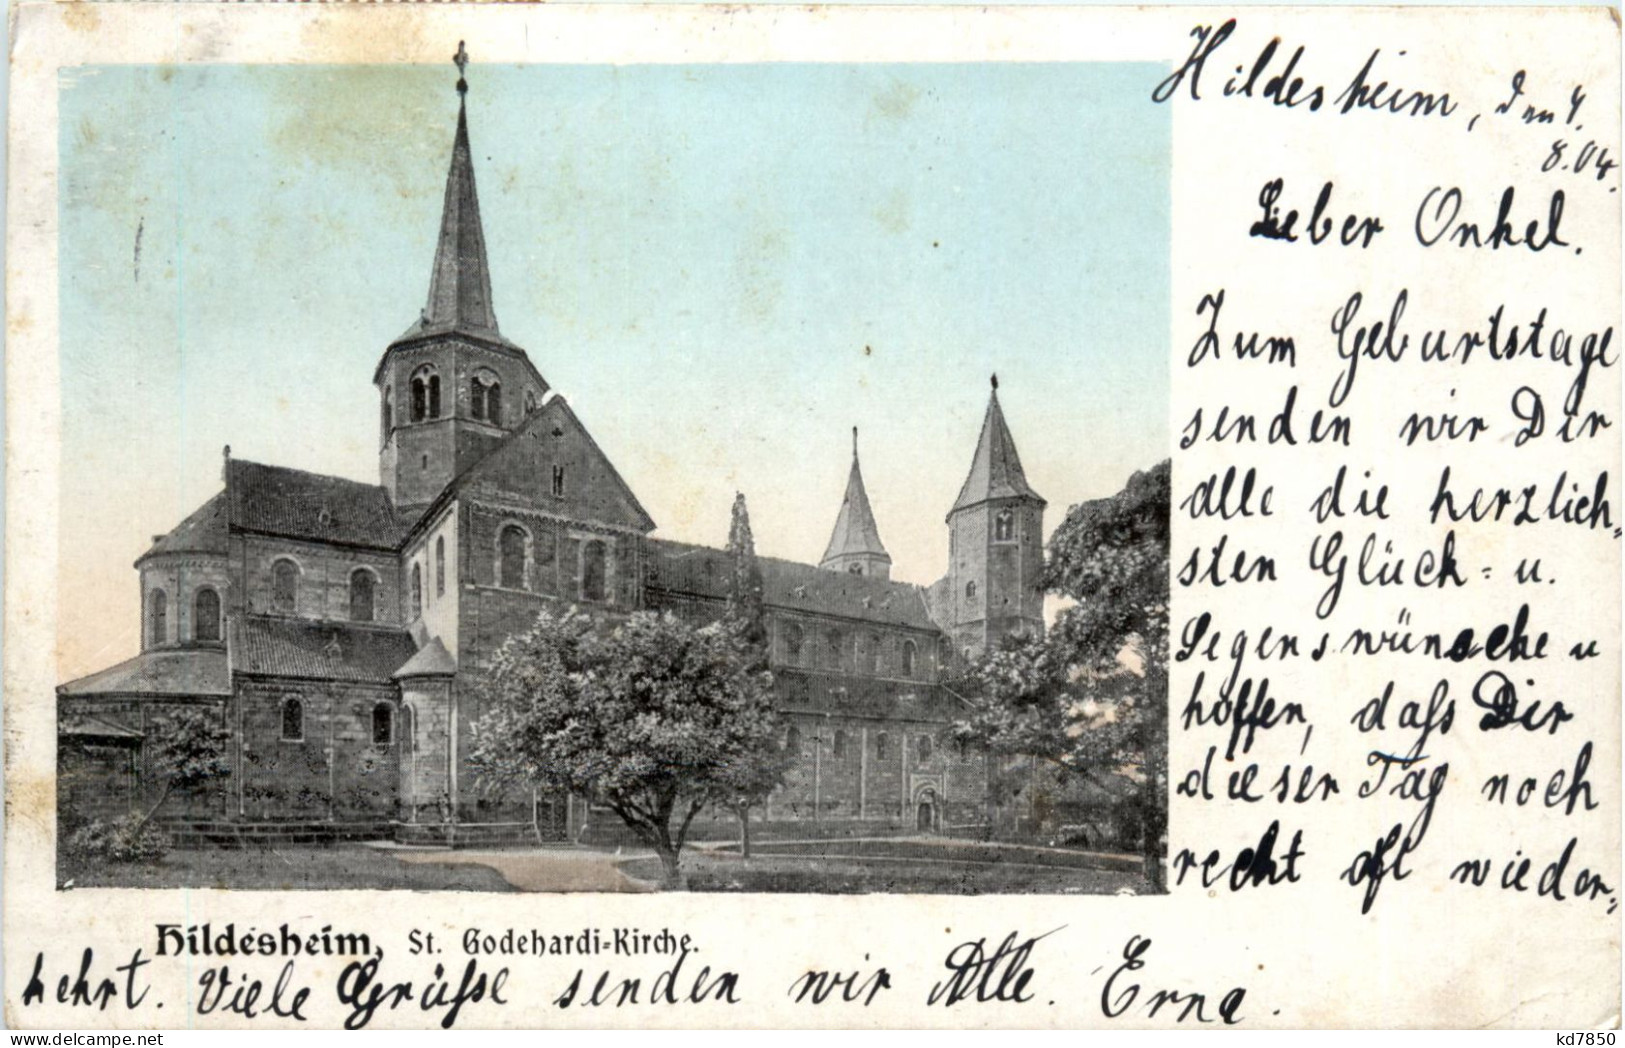 Hildesheim, den 4.
8.04.
Lieber Onkel.
Zum Geburtstage
senden wir Dir
alle die herzlich=
sten Glück= u.
Segenswünsche u
hoffen, daſs Dir
dieser Tag noch
recht oft wieder=
kehrt. Viele Grüſse senden wir Alle. Erna.
Hildesheim, St. Godehardi=Kirche.
kd7850